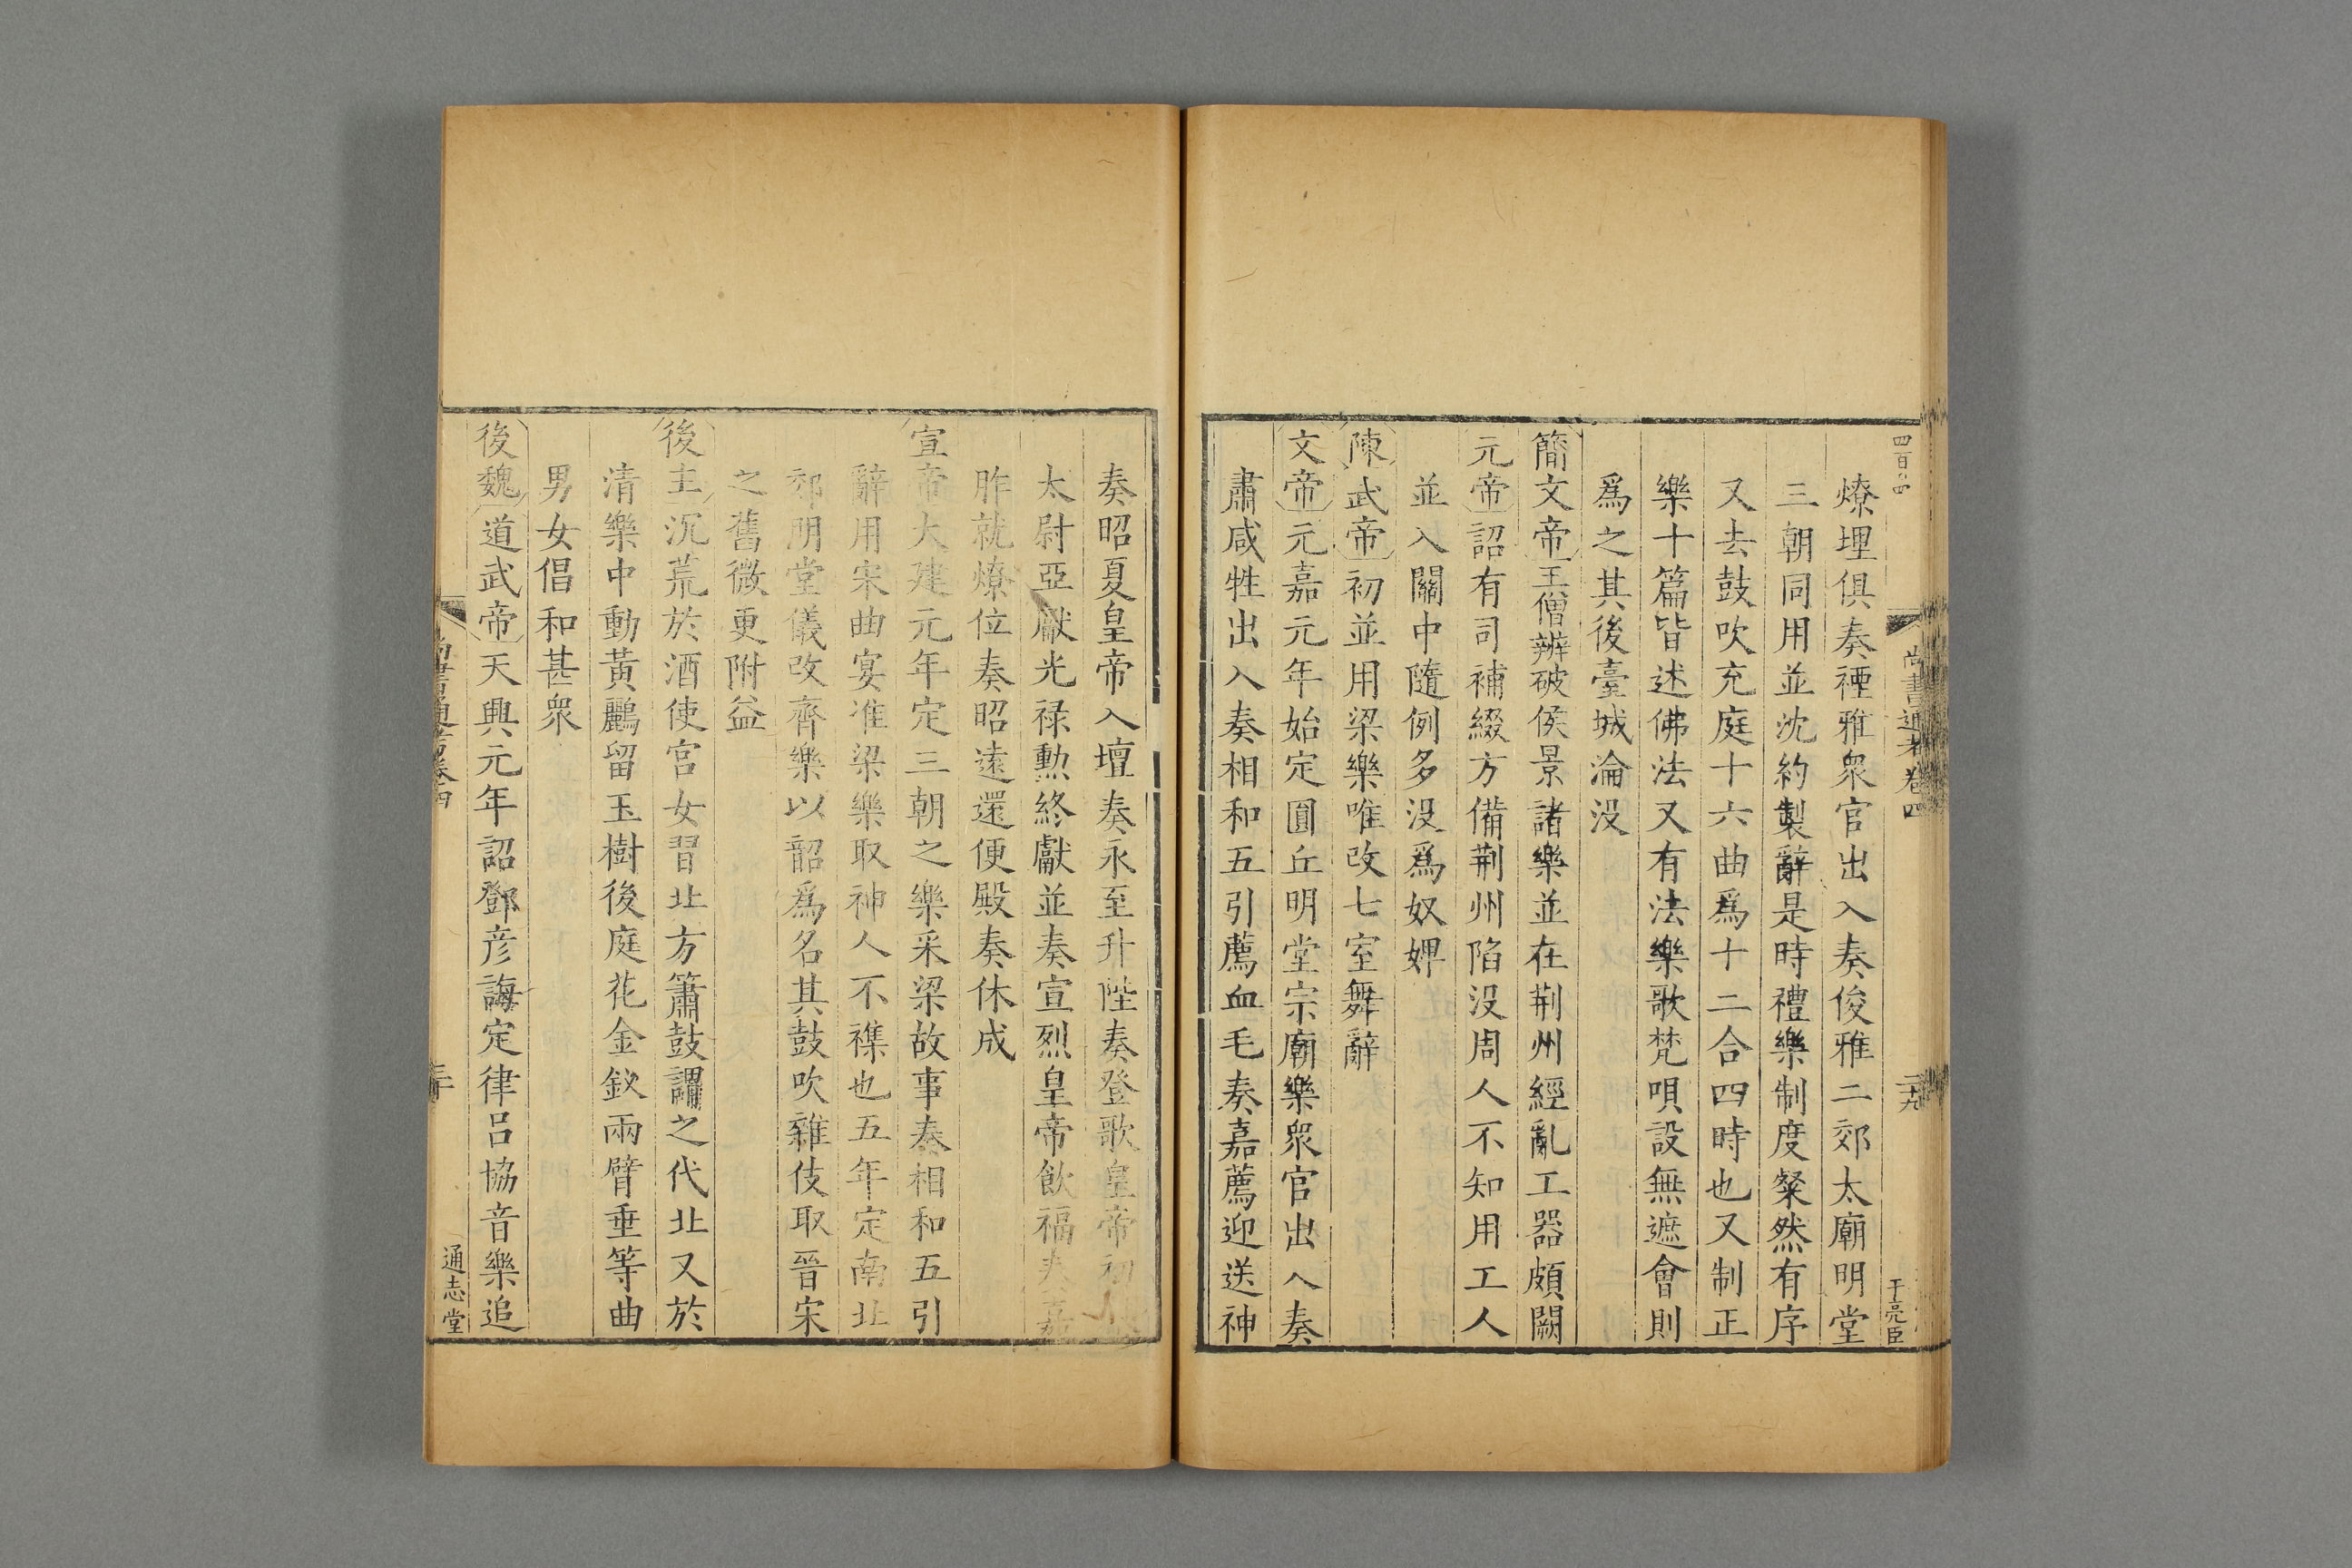 尚書通考卷四
二十九
于亮臣
燎埋俱奏禋雅衆官出入奏俊雅二郊太廟明堂
三朝同用並沈約製辭是時禮樂制度粲然有序
又去鼓吹充庭十六曲爲十二合四時也又制正
樂十篇皆述佛法又有法樂歌梵唄設無遮會則
爲之其後臺城淪没
簡文帝王僧辨破侯景諸樂並在荆州經亂工器頗闕
元帝詔有司補綴方備荆州陷没周人不知用工人
並入關中隨例多没爲奴婢
陳武帝初並用梁樂唯改七室舞辭
文帝元嘉元年始定圓丘明堂宗廟樂衆官出入奏
肅咸牲出入奏相和五引薦血毛奏嘉薦迎送神
奏昭夏皇帝入壇奏永至升陛奏登歌皇帝初
太尉亞獻光禄勲終獻並奏宣烈皇帝飲福奏嘉
胙就燎位奏昭遠還便殿奏休成
宣帝大建元年定三朝之樂采梁故事奏相和五引
辭用宋曲宴准梁樂取神人不襍也五年定南北
郊明堂儀改齊樂以韶爲名其鼓吹雜伎取晉宋
之舊微更附益
後主沉荒於酒使宫女習北方簫鼓謂之代北又於
清樂中動黃鸝留玉樹後庭花金釵兩臂垂等曲
男女倡和甚衆
後魏道武帝天興元年詔鄧彦誨定律吕協音樂追
尚書通考卷四
三十
通志堂